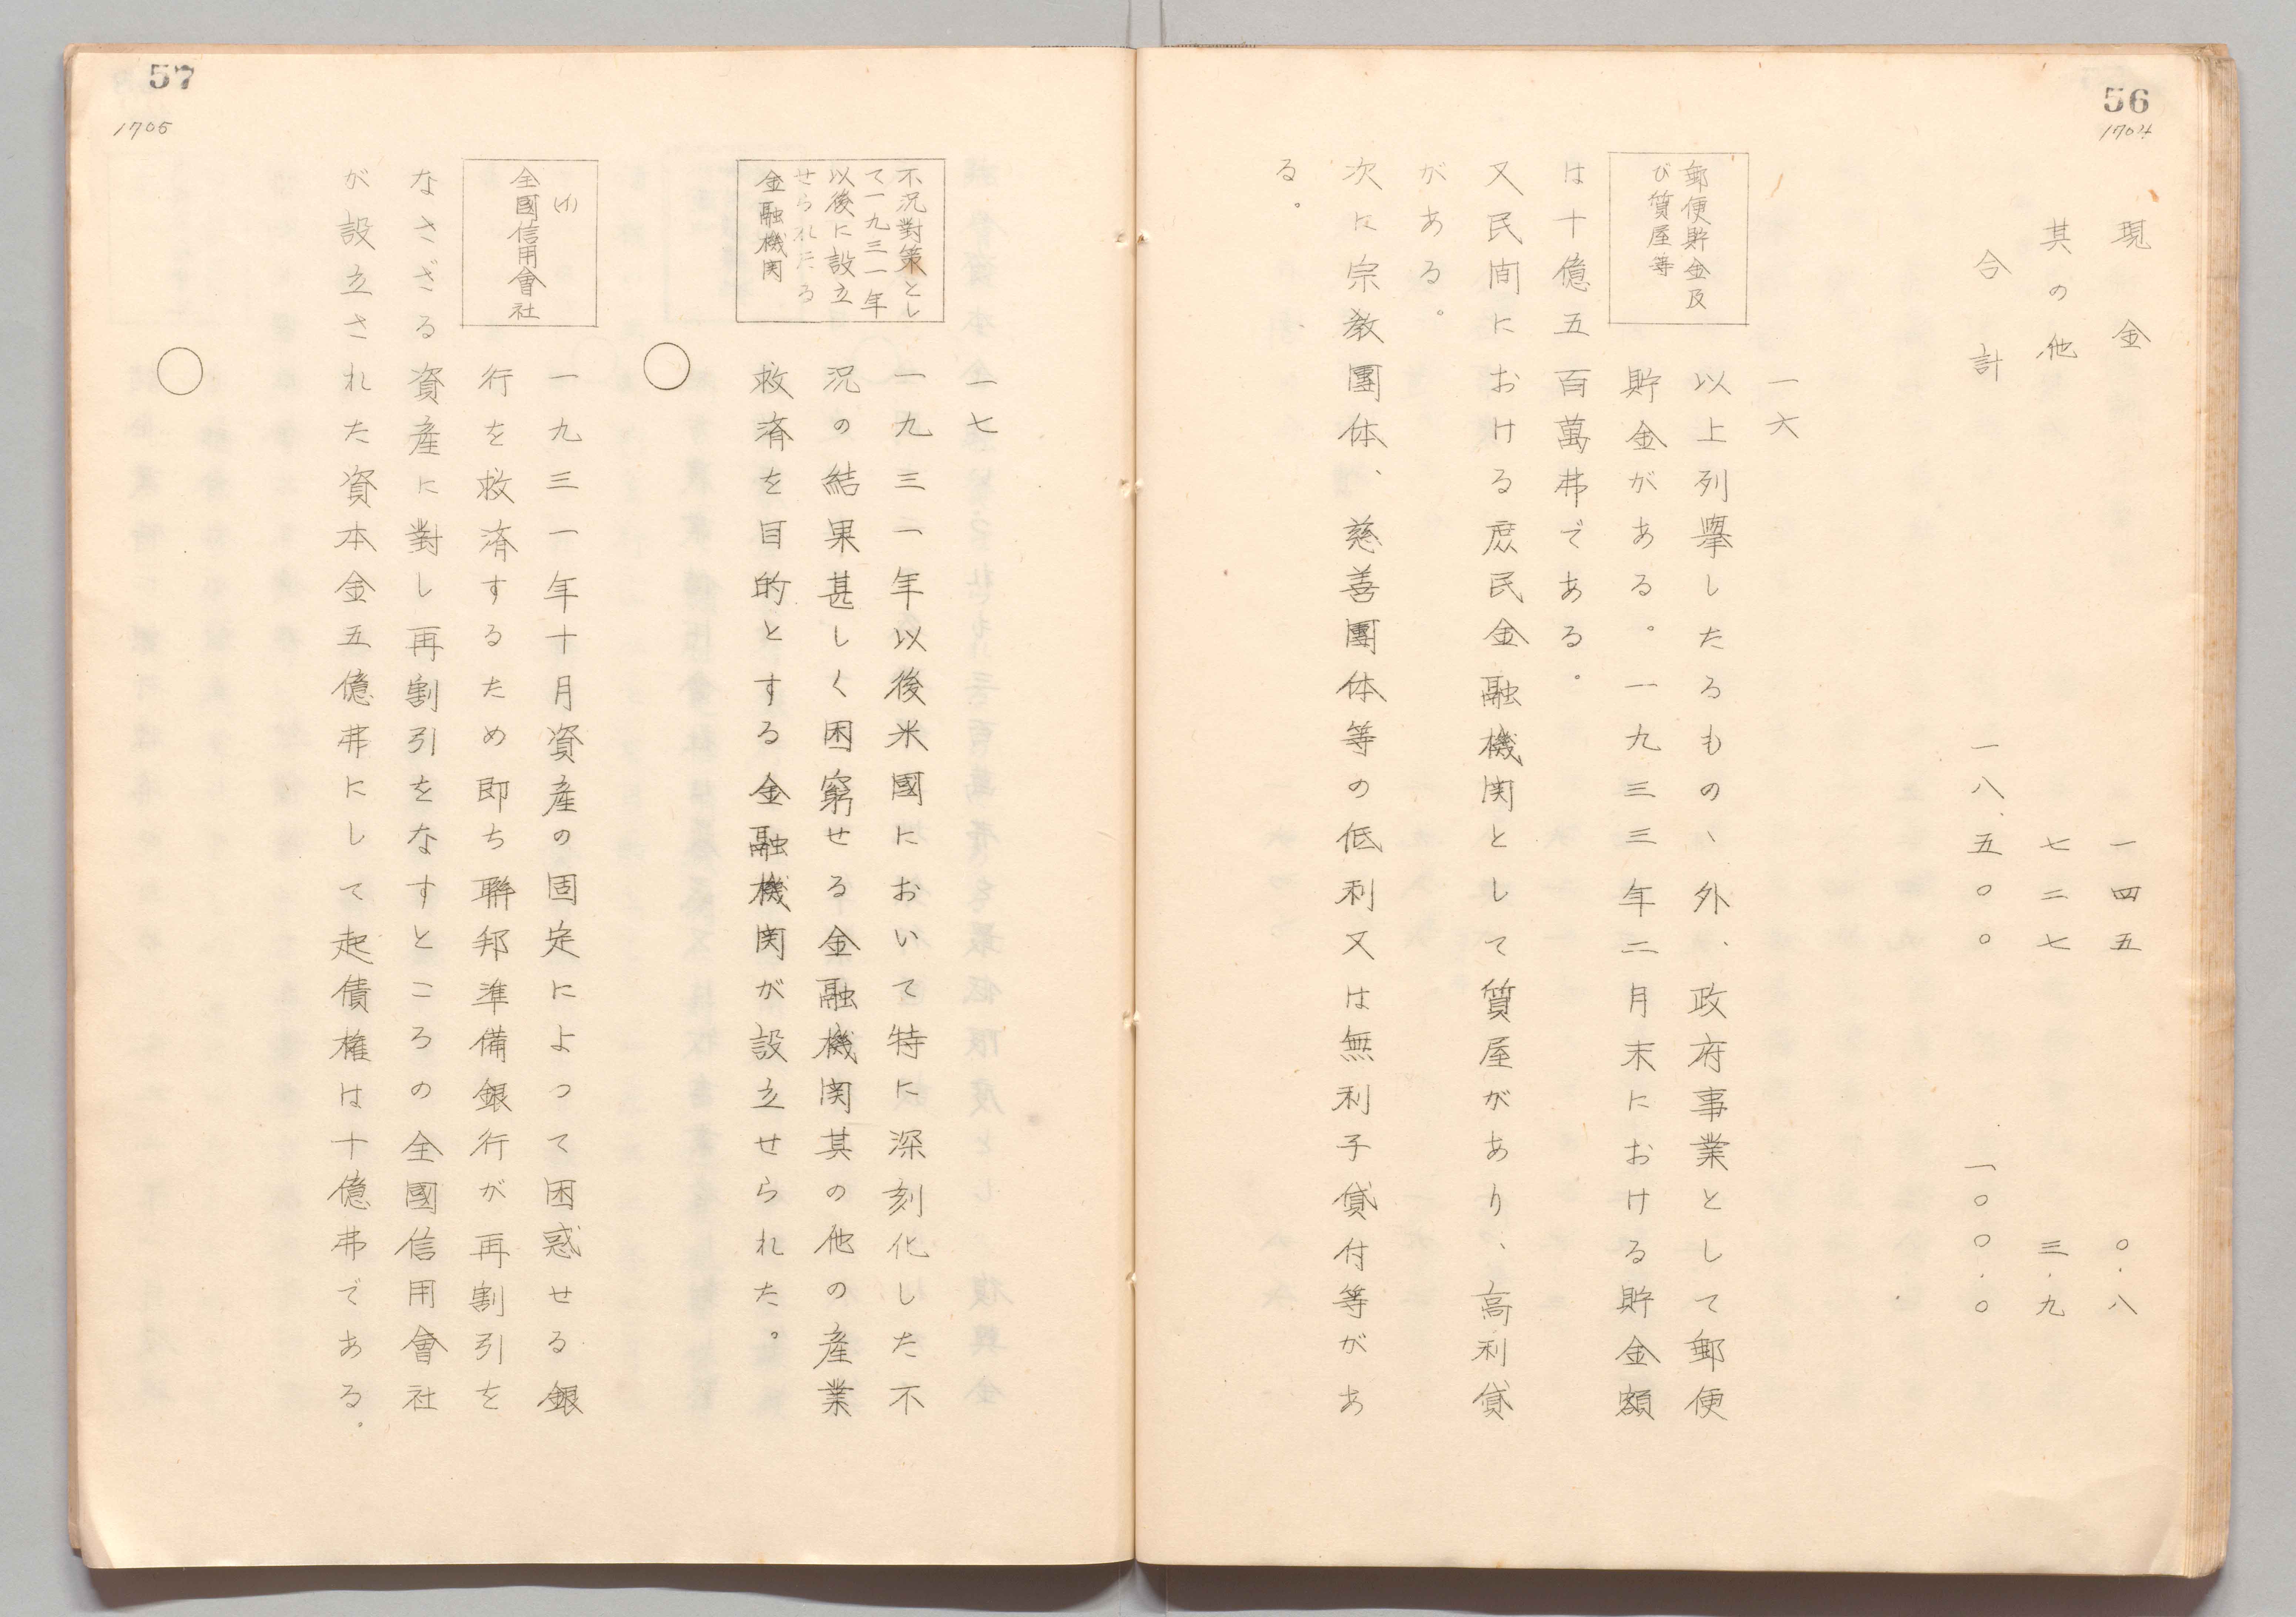 56
1704
現金 一四五 〇.八
其の他 七二七 三.九
合計 一八、五〇〇 一〇〇.〇
一六
郵便貯金及
び質屋等
以上列擧したるものゝ外、政府事業として郵便
貯金がある。一九三三年二月末における貯金額
は十億五百萬弗である。
又民間における庶民金融機関として質屋があり、高利貸
がある。
次に宗教團体、慈善團体等の低利又は無利子貸付等があ
る。
57
1705
一七
不況對策とし
て一九三一年
以後に設立
せられたる
金融機関
一九三一年以後米國において特に深刻化した不
況の結果甚しく困窮せる金融機関其の他の産業
救済を目的とする金融機関が設立せられた。
○
(イ)
全國信用會社
一九三一年十月資産の固定によって困惑せる銀
行を救済するため即ち聯邦準備銀行が再割引を
なさざる資産に對し再割引をなすところの全國信用會社
が設立された資本金五億弗にして起債権は十億弗である。
○